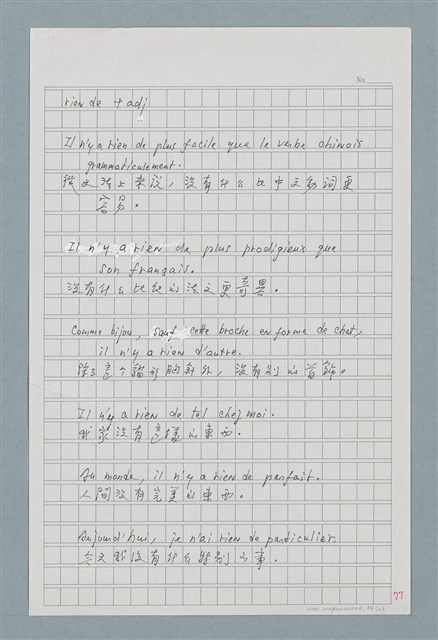 No.
rien de + adj
Il n'y a rien de plus facile que le verbe chinois
grammaticalement.
從文法上來說，沒有什么比中文動詞更
容易。
Il n'y a rien de plus prodigieux que
son français.
沒有什么比他的法文更奇異。
Comme bijou, sauf cette broche en forme de chat,
il n'y a rien d'autre.
除了這个貓形胸針外，沒有別的首飾。
Il n'y a rien de tel chez moi.
我家沒有這樣的東西。
Au monde, il n'y a rien de parfait.
人間沒有完美的東西。
Aujourd'hui, je n'ai rien de particulier.
今天我沒有什么特別的事。
77